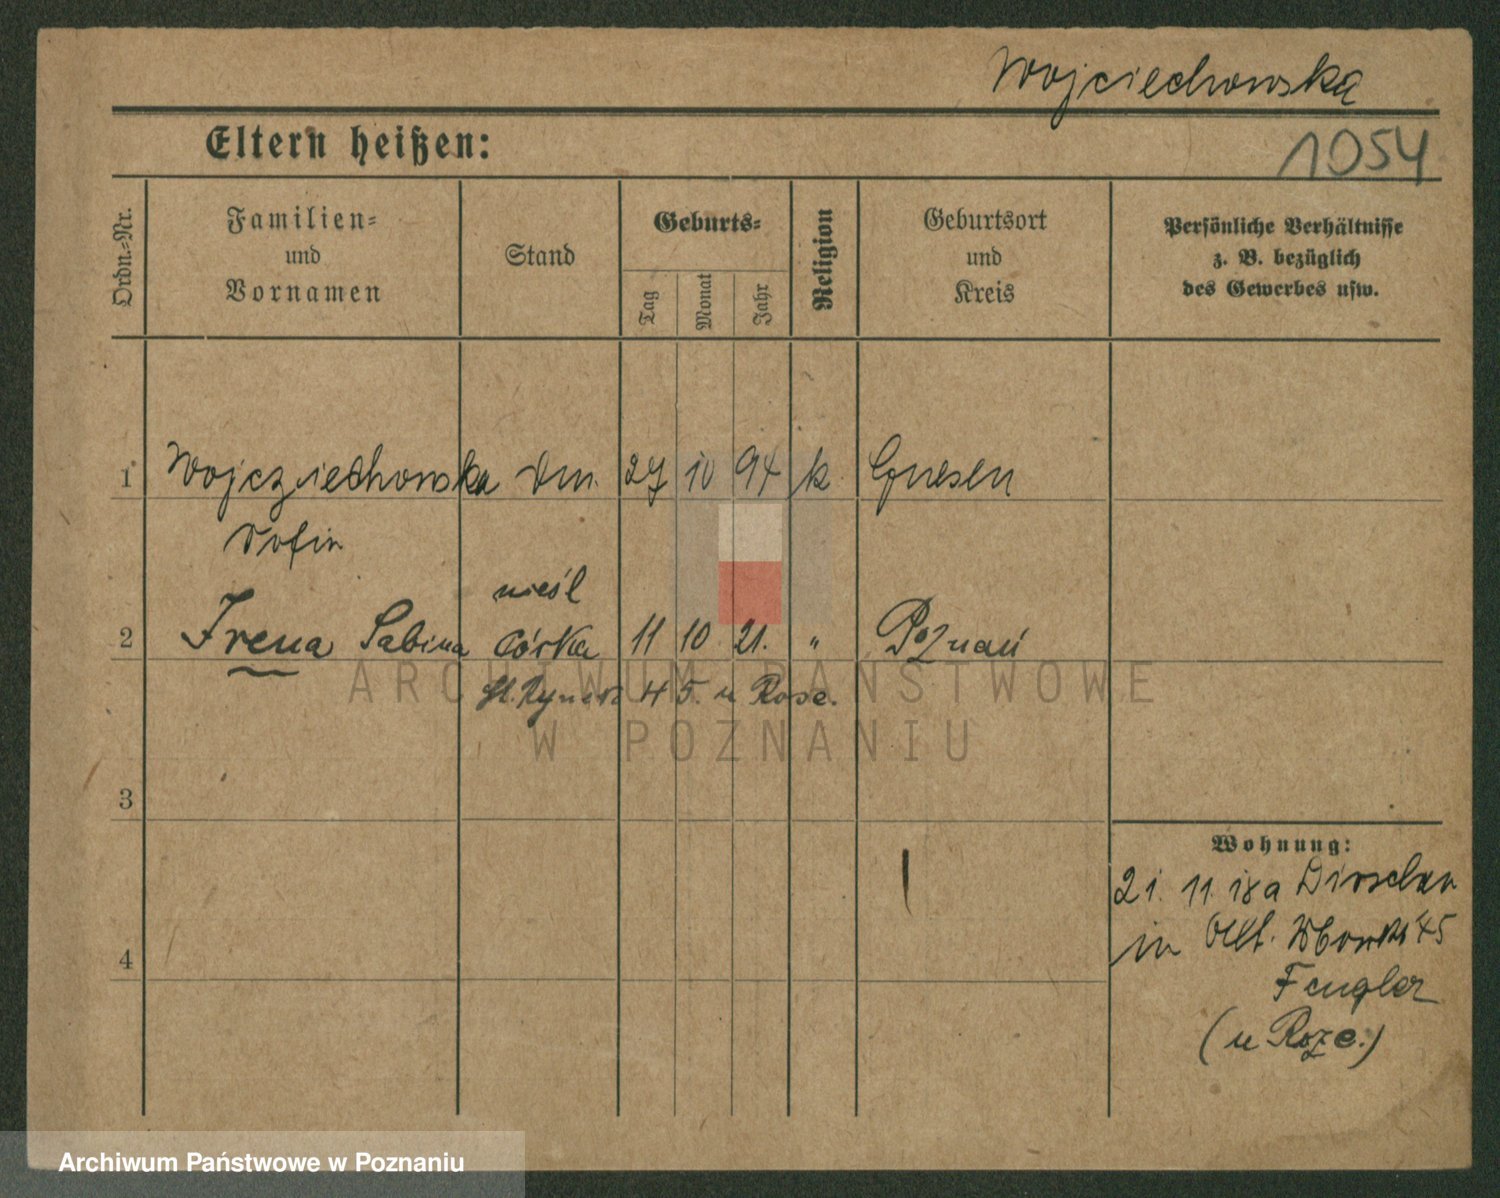 Wojciechowska
Eltern heißen:
1054
Ordn.=Nr.
Familien=
und
Vornamen
Stand
Geburts=
Tag
Monat
Jahr
Religion
Geburtsort
und
Kreis
Persönliche Verhältnisse
z. B. bezüglich
des Gewerbes usw.
1 Wojcziechowska 27 10 94 k Gnesen
nieśl
2 Irena Sabina córka 11 10 21. " Poznań
St. Rynek 45. u Rose.
ARCHIWUM PAŃSTWOWE
W POZNANIU
3
Wohnung:
21. 11. 18 a Dirschau
in 45
4
Fengler
(u Roze.)
Archiwum Państwowe w Poznaniu